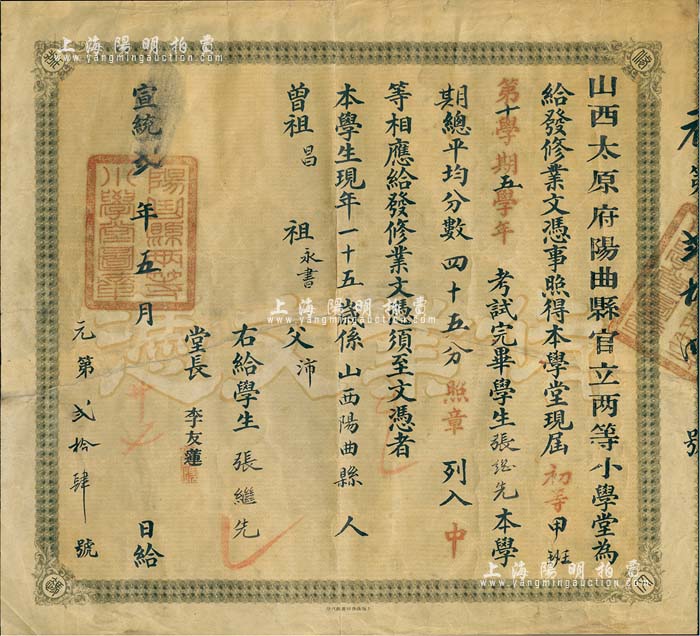 山西太原府陽曲縣官立两等小學堂為
給發修業文憑事照得本學堂現屆初等甲班
第十學期五學年考試完畢學生張繼先本學
期總平均分數四十五分照章列入中
等相應給發修業文憑須至文憑者
本學生現年一十五歲係山西陽曲縣人
曾祖昌 祖永書 父沛
右給學生張繼先
堂長李友蓮
宣統弍年五月 日給
元第弍拾肆號
修業文憑
陽曲縣两等小學堂圖章
上海陽明拍賣
www.yangmingauction.com
上海陽明拍賣
www.yangmingauction.com
上海陽明拍賣
www.yangmingauction.com